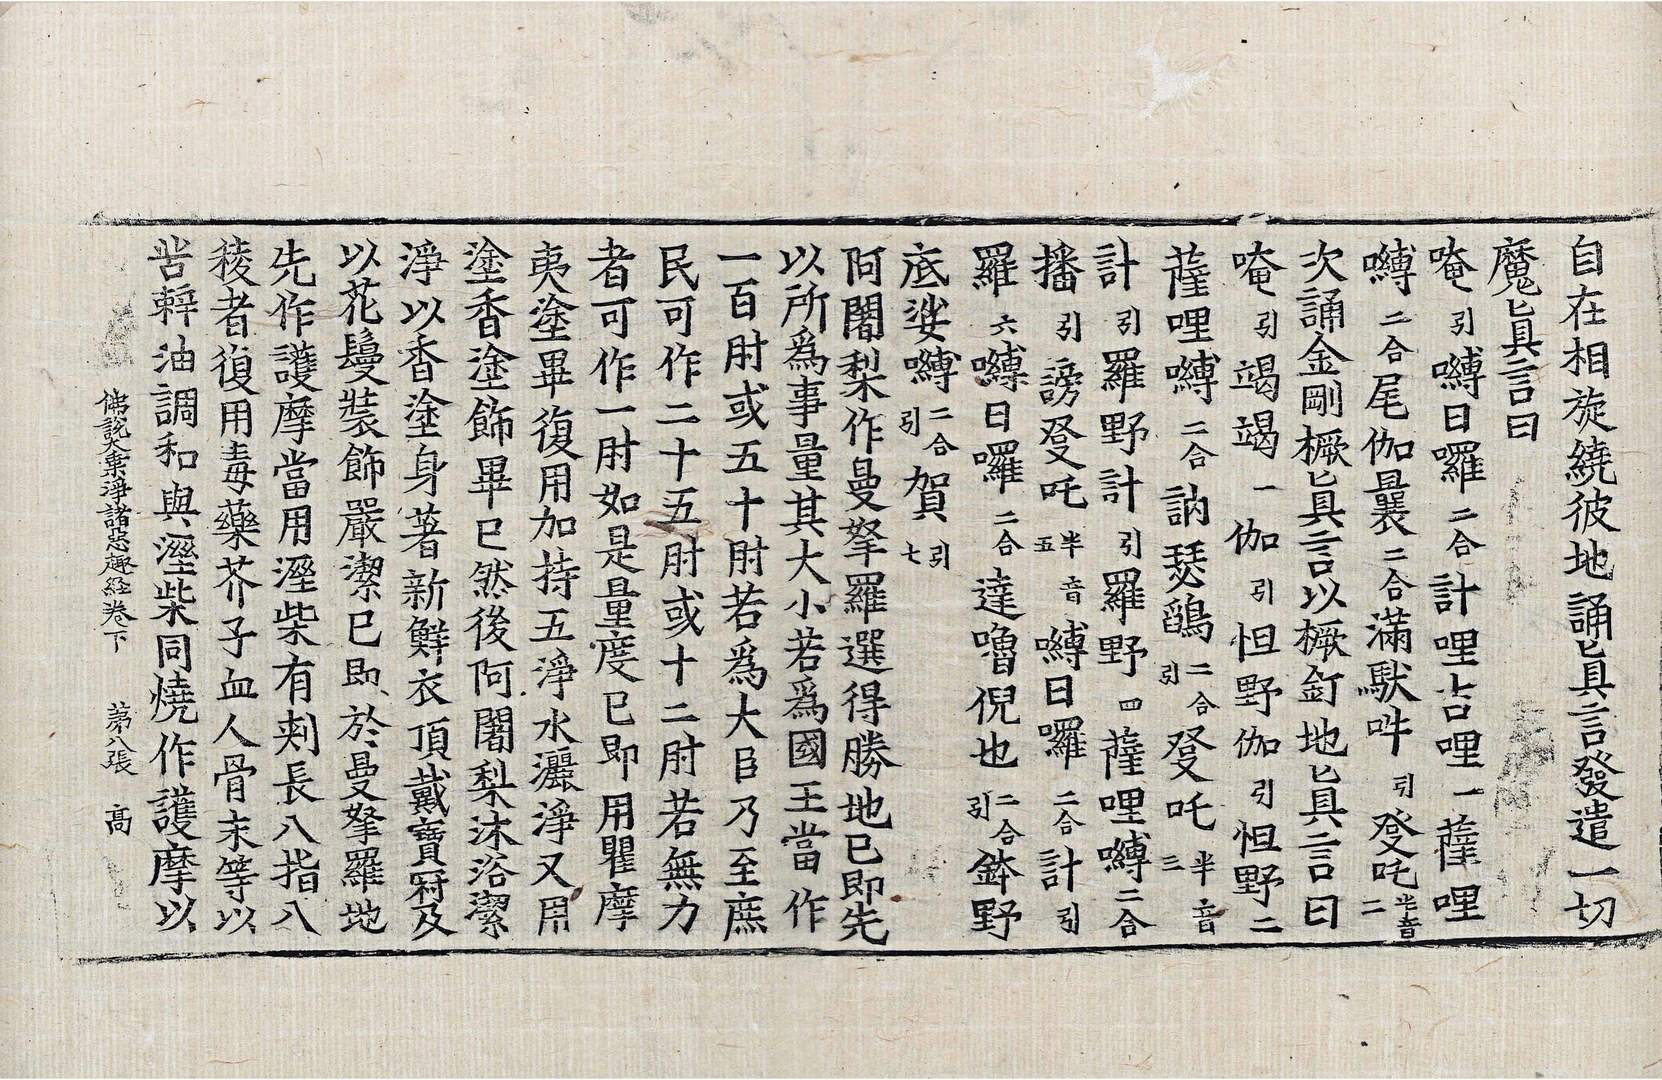 自在相旋繞彼地誦眞言發遣一切
魔眞言曰
唵引嚩日囉二合計哩吉哩一薩哩
嚩二合尾伽曩二合滿馱吽引癹吒半音二
次誦金剛橛眞言以橛釘地眞言曰
唵引竭竭一伽引怛野伽引怛野二
薩哩嚩二合訥瑟鵮二合引癹吒半音三
計引羅野計引羅野四薩哩嚩二合
播引謗癹吒半音五嚩日囉二合計引
羅六嚩日囉二合達嚕倪也二合引鉢野
底娑嚩二合引賀引七
阿闍梨作曼拏羅選得勝地已即先
以所爲事量其大小若爲國王當作
一百肘或五十肘若爲大臣乃至庶
民可作二十五肘或十二肘若無力
者可作一肘如是量度已即用瞿摩
夷塗畢復用加持五淨水灑淨又用
塗香塗飾畢已然後阿闍梨沐浴潔
淨以香塗身著新鮮衣頂戴寶冠及
以花鬘裝飾嚴潔已即於曼拏羅地
先作護摩當用溼柴有刺長八指八
稜者復用毒藥芥子血人骨末等以
苦辢油調和與溼柴同燒作護摩以
佛說大乘淨諸惡趣經卷下 第八張 高